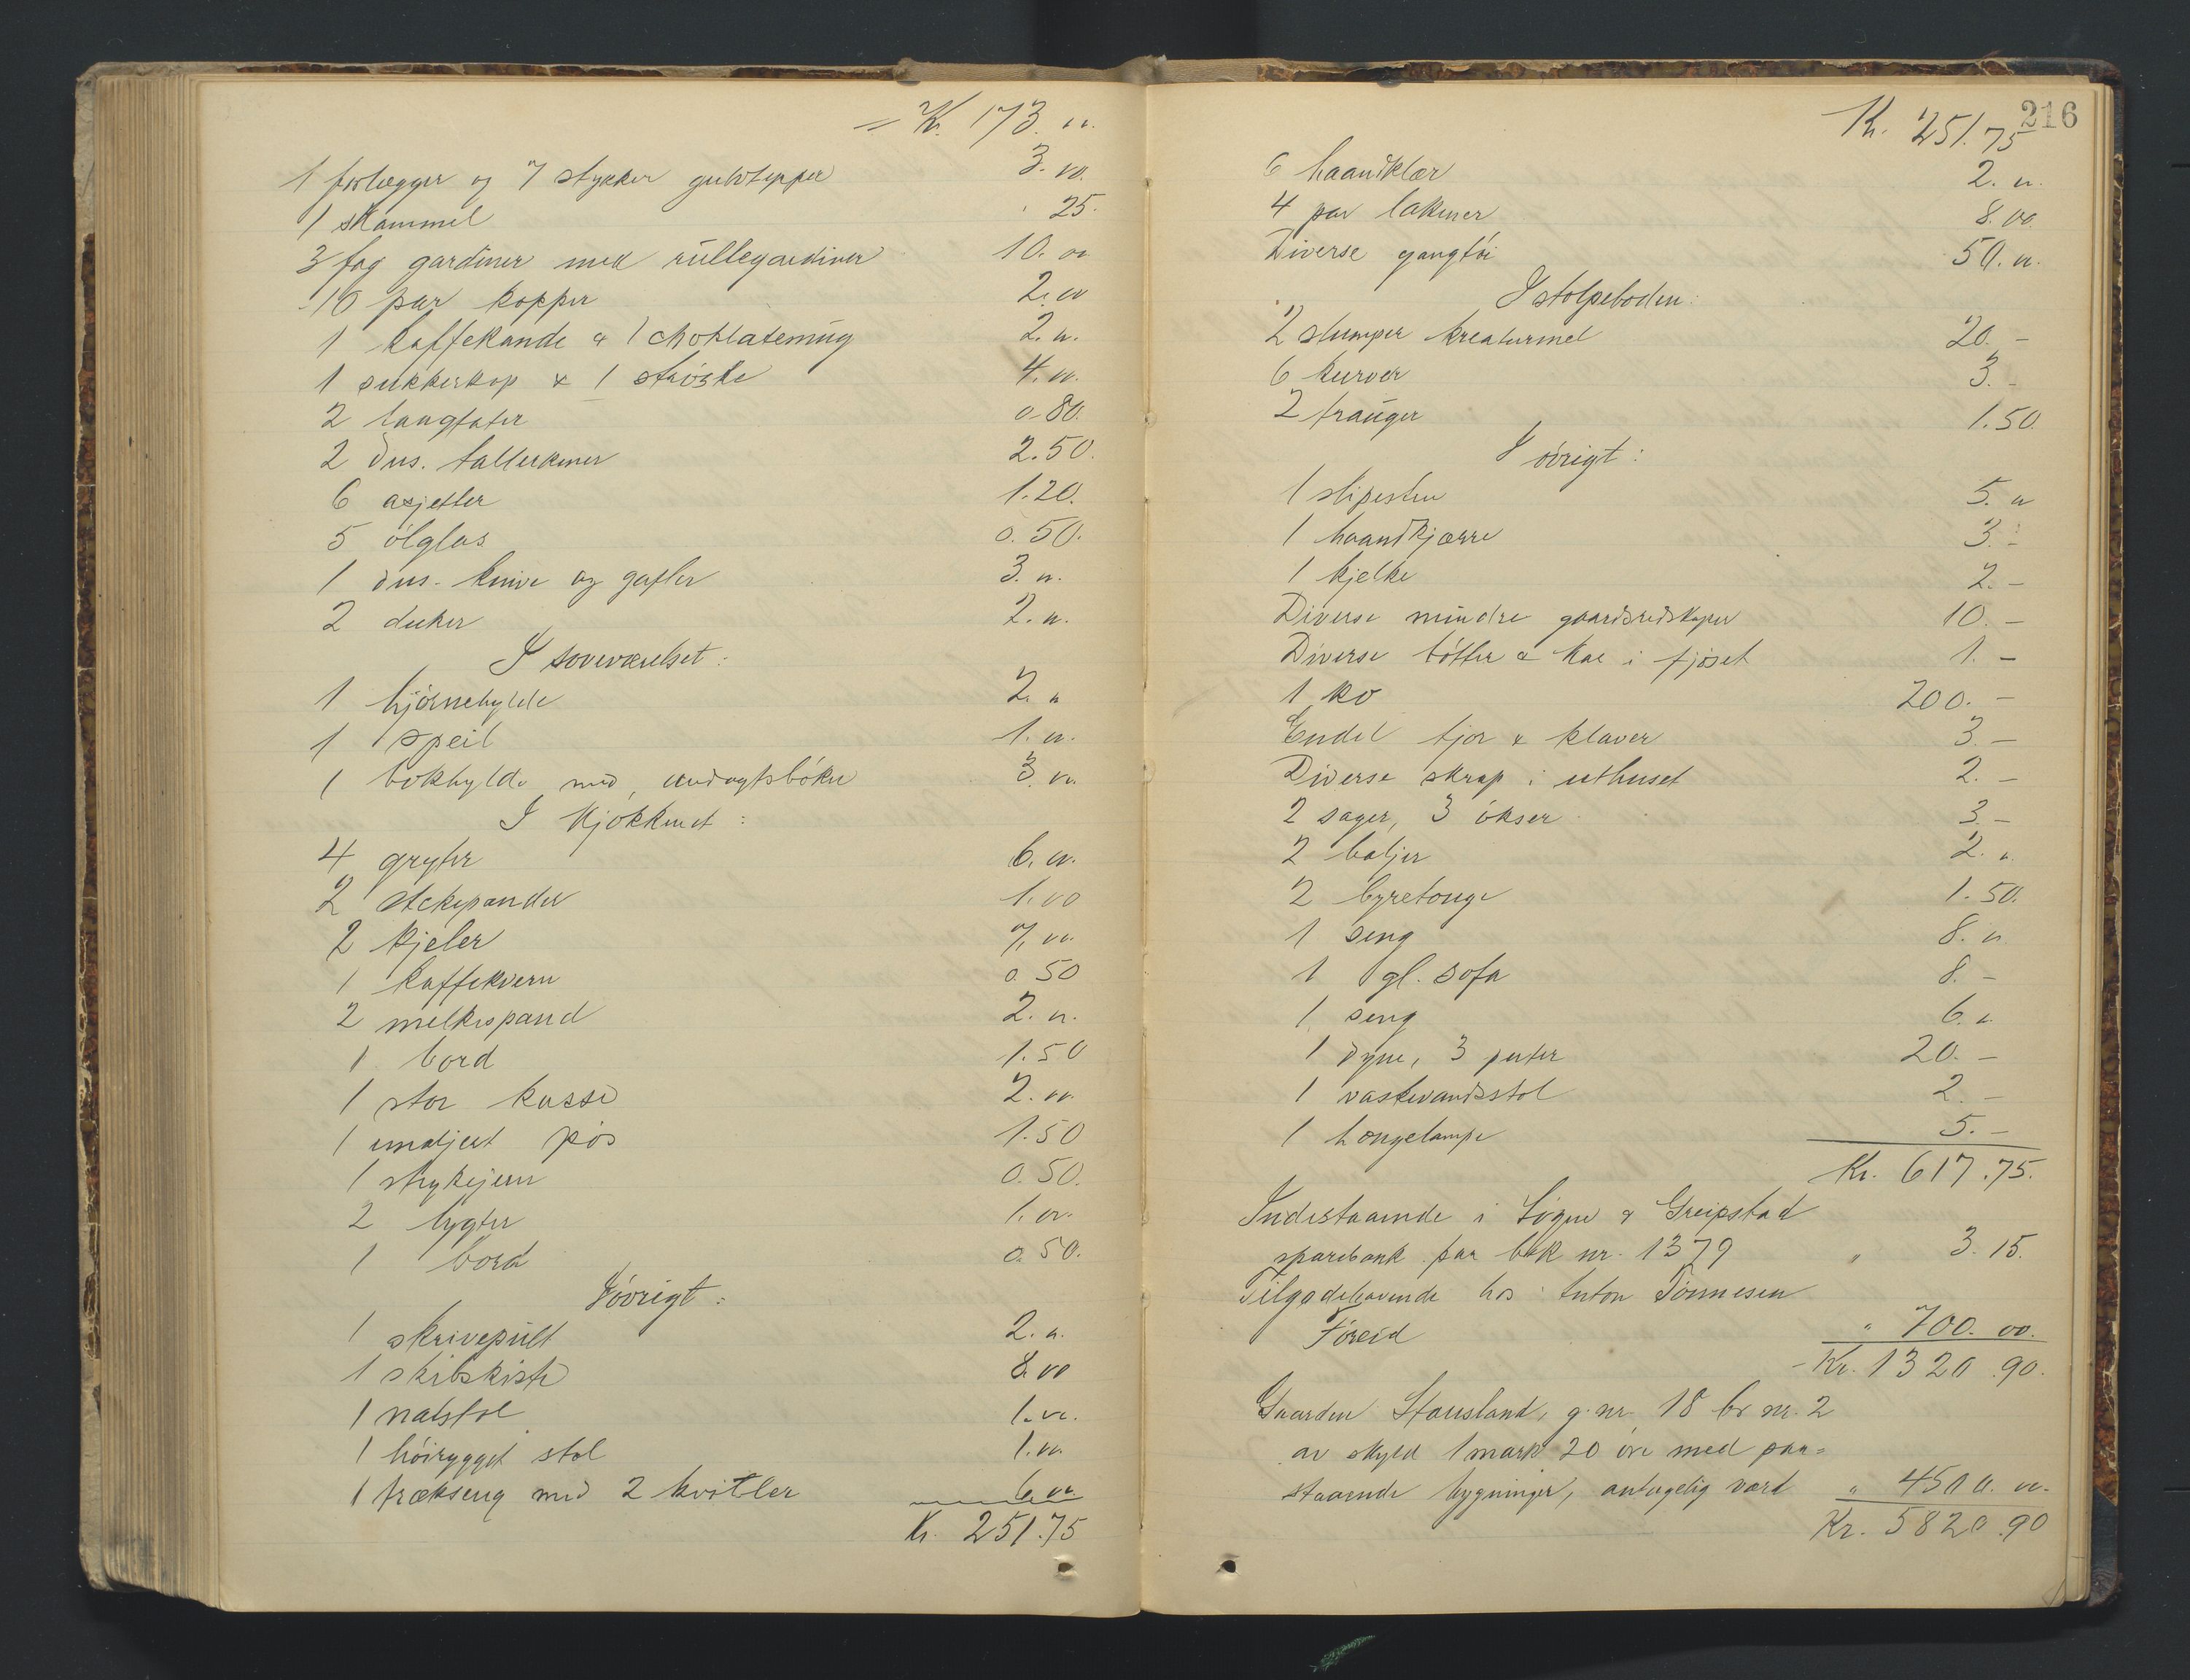 = Kr. 173. 00.
1 forlægger og 7 stykker gulvtepper 3. 00.
1 skammel . 25.
3 fag gardiner med rullegardiner 10. 00
10 par kopper 2. 00
1 kaffekande & 1 chokladenug 2. 00.
1 sukkerkop & 1 strøske 4. 00.
2 langfater 0.80.
2 dus. tallerkener 2.50.
6 asjetter 1.20.
5 ølglas 0. 50.
1 dus. knive og gafler 3. 00.
2 duker 2. 00.
I soveværelset:
1 hjørnehylde 2. 00
1 speil 1. 00.
1 bokhylde med andagtsbøker 3. 00.
I kjøkkenet:
4 gryter 6. 00.
2 stekepander 1.00
2 kjeler 7. 00.
1 kaffekvern 0. 50
2 melkespand 2. 00.
1 bord 1.50
1 stor kasse 2. 00.
1 emaljert pøs 1.50
1 strykejern 0. 50.
2 lygter 1. 00.
1 bord 0. 50.
I øvrigt:
1 skrivepult 2. 00.
1 skibskiste 8.00
1 natstol 1. 00.
1 høirygget stol 1. 00.
1 trækseng med 2 kvitler 6. 00
Kr. 251.75
216
Kr. 251.75
6 haandklær 2. 00.
4 par lakener 8. 00
Diverse gangtøi 50. 00.
I stolpeboden:
2 slumper kreaturmel 20. –
6 kurver 3. –
2 trauger 1.50.
I øvrigt:
1 slipesten 5. 00
1 haandkjærre 3. –
1 kjelke 2. –
Diverse mindre gaardsredskaper 10. –
Diverse bøtter & kar i fjøset 1. –
1 ko 200. –
Endel tjor & klaver 3. –
Diverse skrap i uthuset 2. –
2 sager, 3 økser 3. –
2 baljer 2. 00.
2 byretonge 1.50.
1 seng 8. 00.
1 gl. sofa 8. –
1 seng 6. 00
1 dyne, 3 puter 20. –
1 vaskevandsstol 2. –
1 hængelampe 5. –
Kr. 617.75.
Indestaaende i Søgne & Greipstad
sparebank paa bok nr. 1379 " 3. 15.
Tilgodehavende hos Anton Tønnesen
Føreid " 700. 00.
Kr. 1320.90.
Gaarden Stausland, g.nr. 18 br. nr. 2
av skyld 1 mark 20 øre med paa=
staaende bygninger, antagelig værd " 4500. 00.
Kr. 5820.90